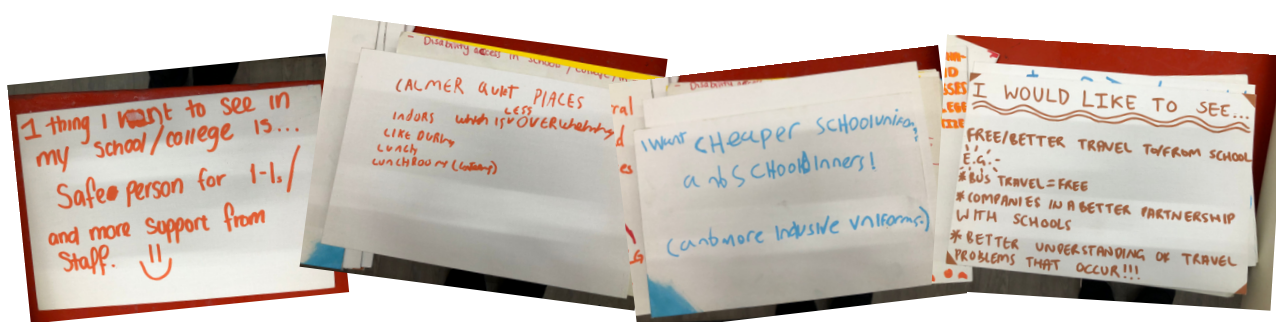 1 thing I want to see in
my school/college is...
Safe person for 1-1s/
and more support from
Staff.
Disability access in school/college/in
CALMER QUIET PlACES
LESS
INDORS which is OVERwhelming
LIKE DURING
LUNCH
LUNCHROOM
I WANT CHeaper SCHOOLUNIForm
anb SCHOOlDinners!
(anb more Inclusive UNIForms.)
I WOULD LIKE TO SEE...
FREE/BETTER TRAVEL TO/FROM SCHOOL
E.G:-
*BUS TRAVEL = FREE
*COMPANIES IN A BETTER PARTNERSHIP
WITH SCHOOLS
* BETTER UNDERSTANDING OF TRAVEL
PROBLEMS THAT OCCUR!!!